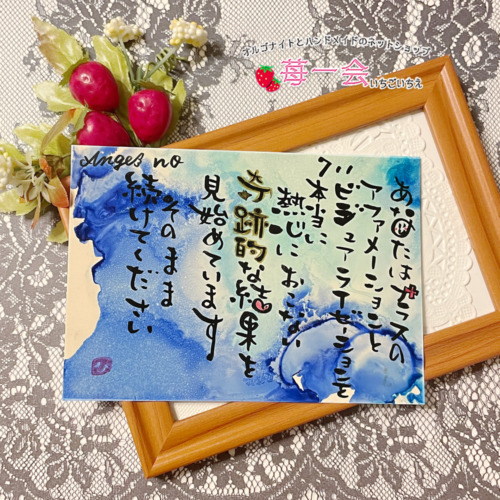 オルゴナイトとハンドメイドのネットショップ
苺一会
いちごいちえ
Anges no
あなたはプラスの
アファメーションと
ビジュアライゼーションを
本当に
熱心におこない
奇跡的な結果を
見始めています
そのまま
続けてください